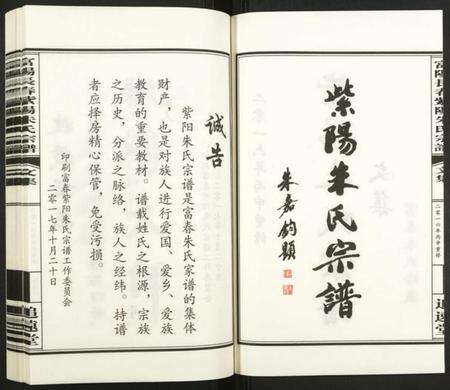 富陽長春紫陽朱氏宗譜
文集
二零一六年丙申重修
追遠堂
紫陽朱氏宗譜
朱嘉鈞題
誠告
紫阳朱氏宗谱是富春朱氏家谱的集体
财产，也是对族人进行爱国、爱乡、爱族
教育的重要教材。谱载姓氏之根源，宗族
之历史，分派之脉络，族人之经纬。持谱
者应择房精心保管，免受污损。
印刷富春紫阳朱氏宗谱工作委员会
二零一七年十月二十日
富陽長春紫陽朱氏宗譜
文集
追遠堂